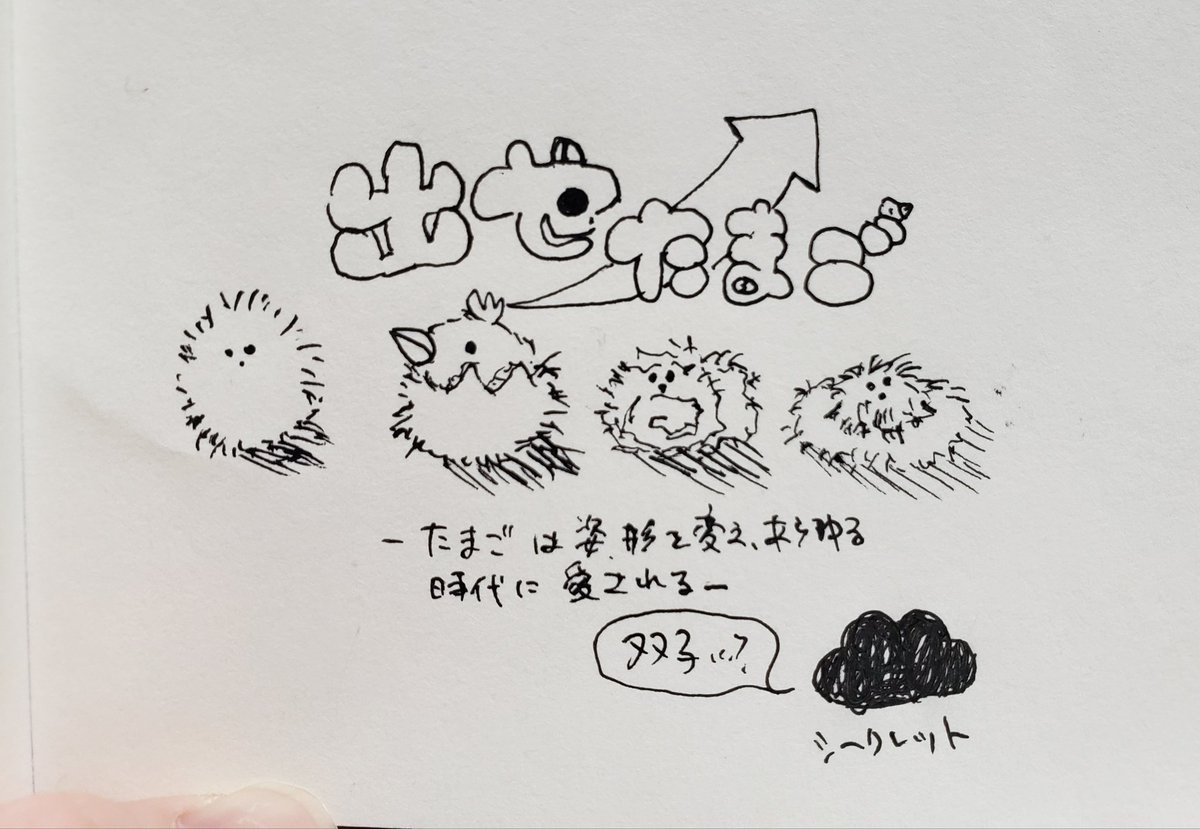 出せたまご
－たまごは姿、形を変え、あらゆる
時代に愛される－
双子…?
シークレット